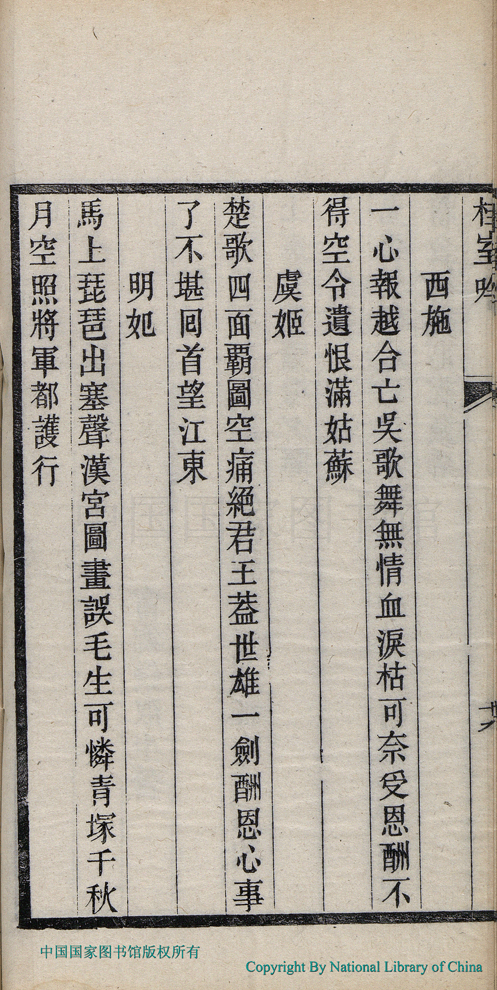 桂室吟
西施
一心報越合亡吳歌舞無情血淚枯可奈受恩酬不
得空令遺恨滿姑蘇
虞姬
楚歌四面霸圖空痛絕君王蓋世雄一劍酬恩心事
了不堪回首望江東
明妃
馬上琵琶出塞聲漢宮圖畫誤毛生可憐青塚千秋
月空照將軍都護行
中国国家图书馆版权所有
Copyright By National Library of China